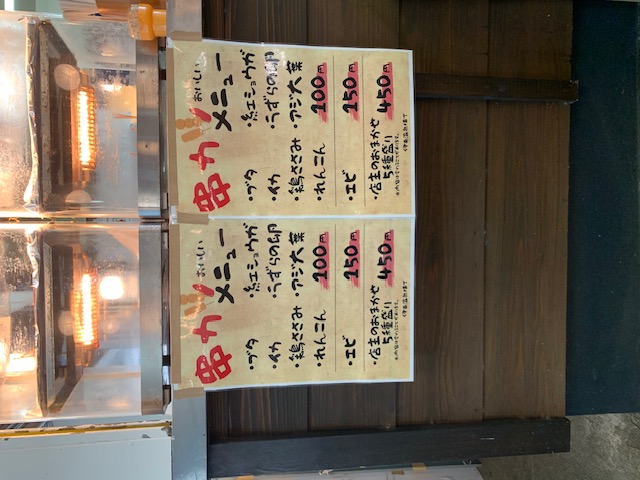 串カツ
おいしい
メニュー
・ブタ ・紅ショウガ
・イカ ・うずらの卵
・鶏ささみ ・アジ大葉
・れんこん 100円
・エビ 150円
・店主のおまかせ
5種盛り 450円
串カツ
おいしい
メニュー
・ブタ ・紅ショウガ
・イカ ・うずらの卵
・鶏ささみ ・アジ大葉
・れんこん 100円
・エビ 150円
・店主のおまかせ
5種盛り 450円